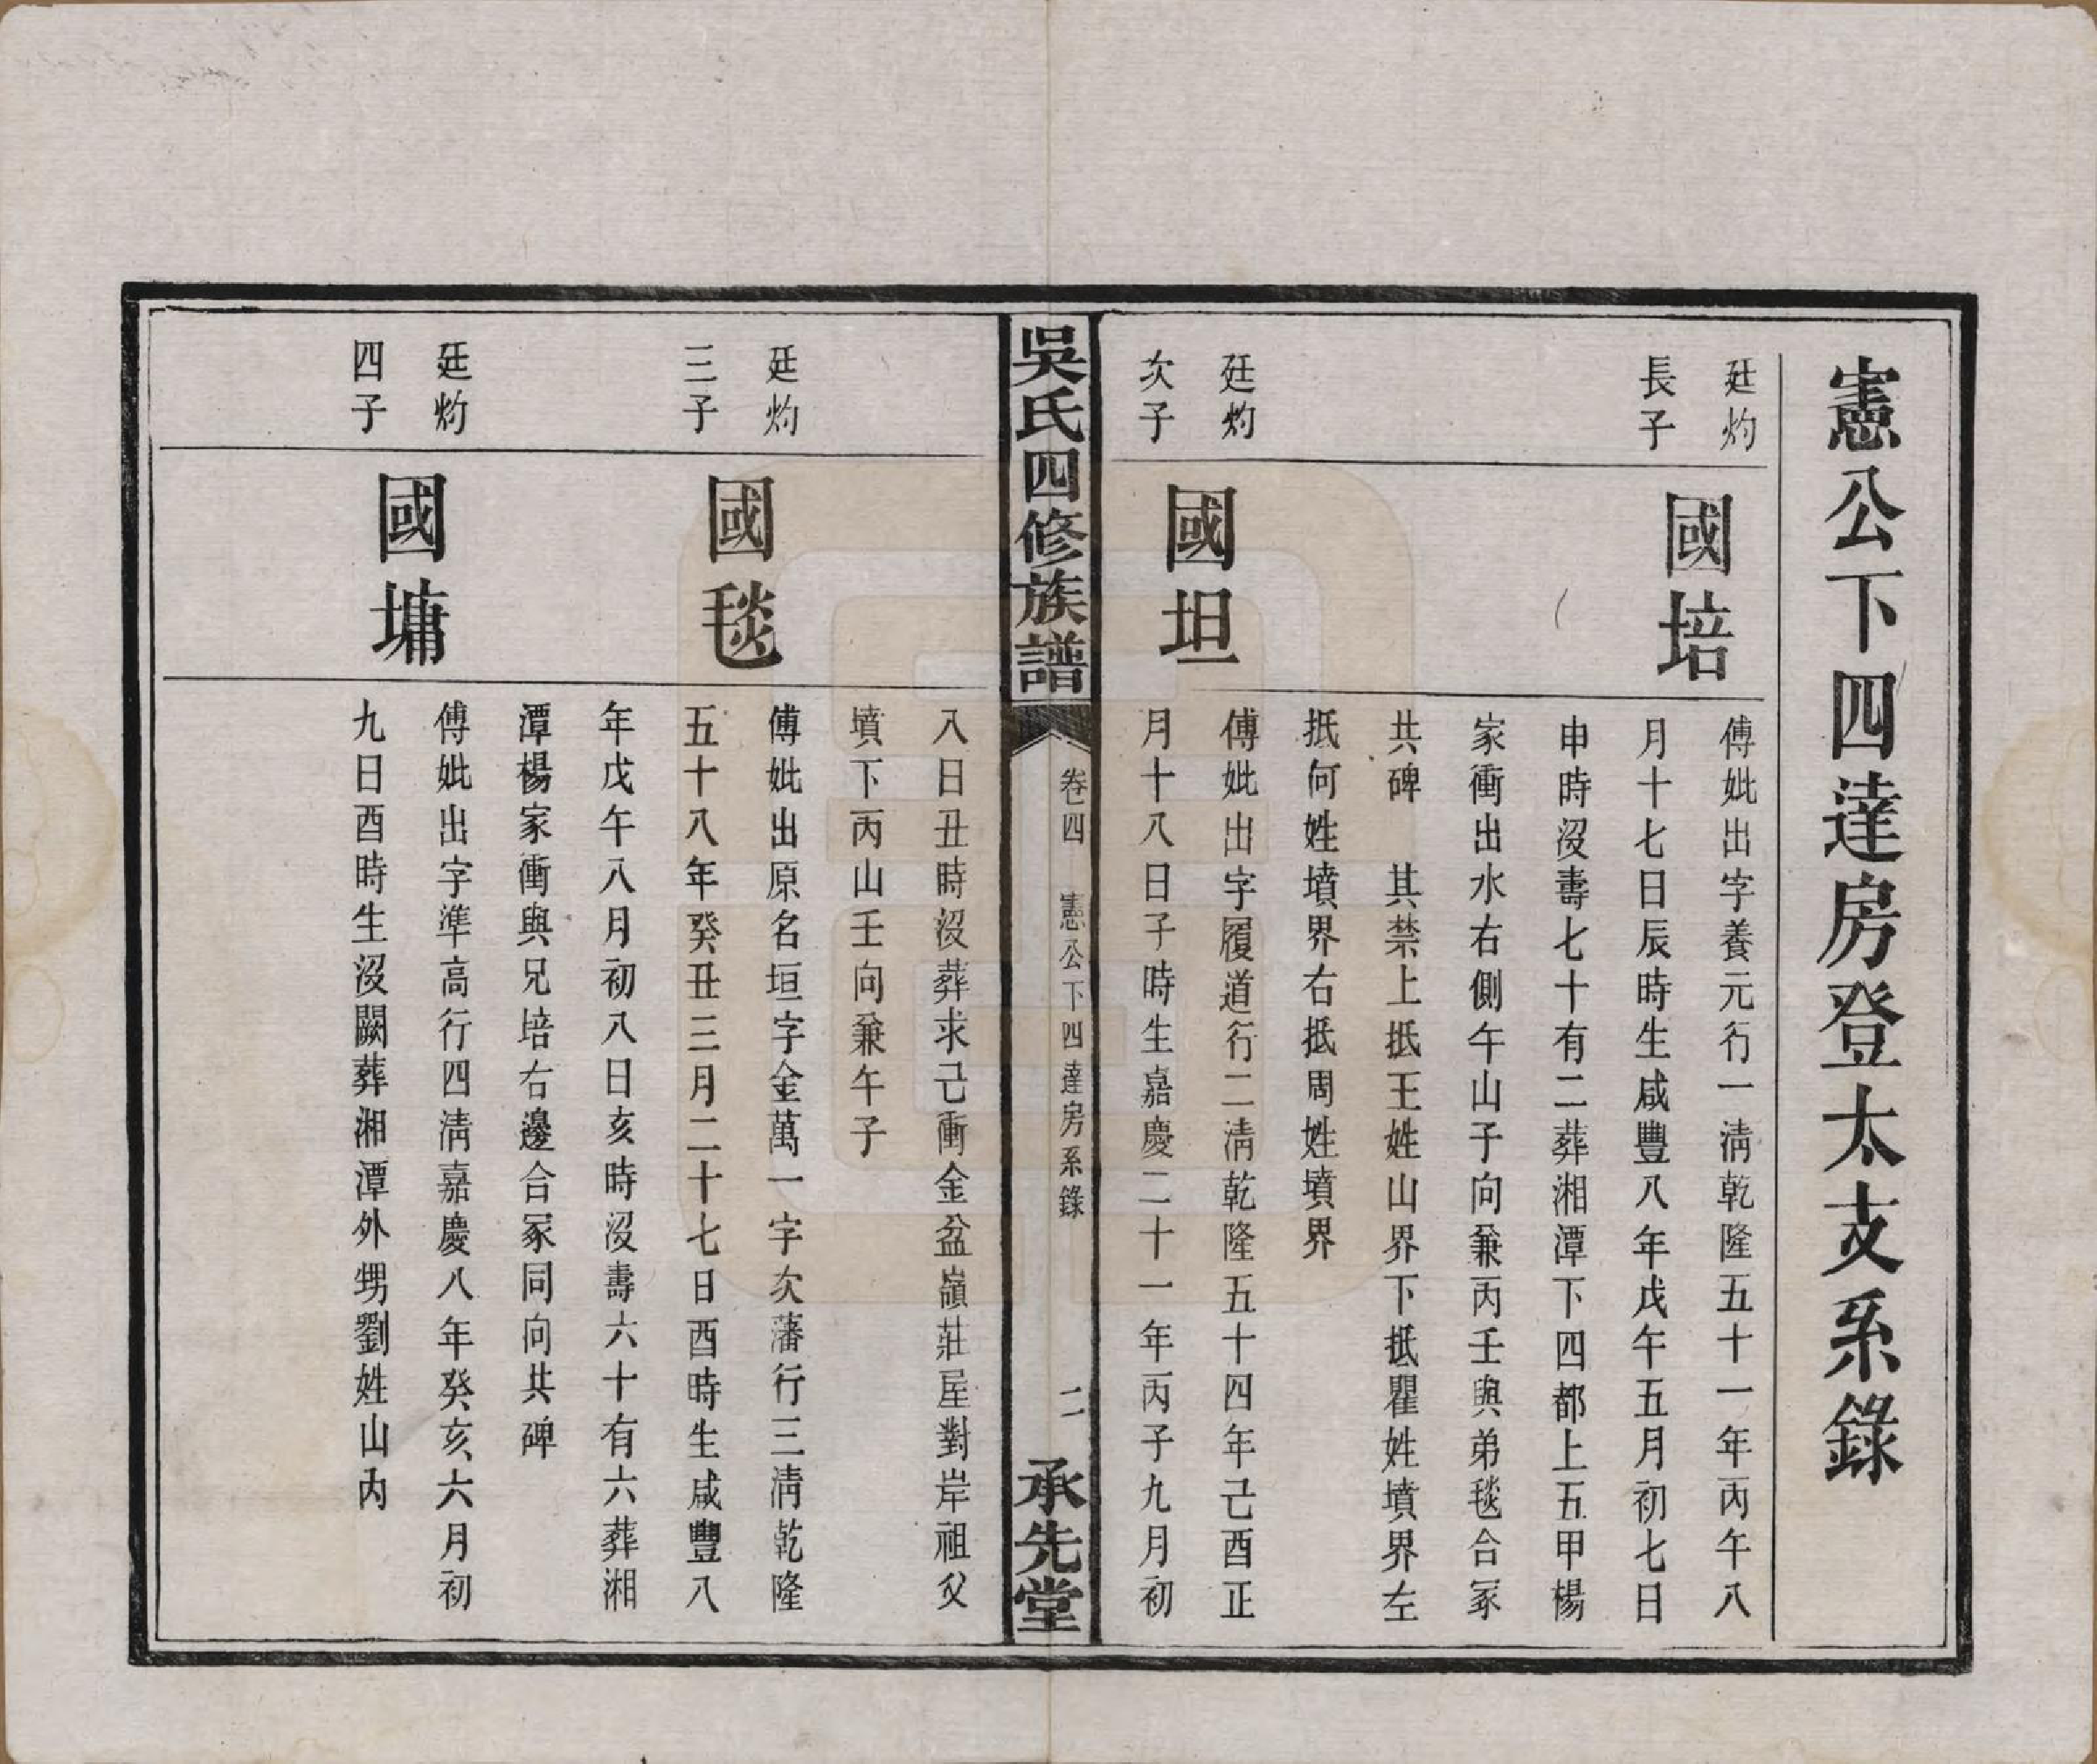 憲公下四達房登太支系錄
廷灼
長子
國培
傅妣出字養元行一淸乾隆五十一年丙午八
月十七日辰時生咸豐八年戊午五月初七日
申時沒壽七十有二葬湘潭下四都上五甲楊
家衝出水右側午山子向兼丙壬與弟毯合冢
共碑　其禁上抵王姓山界下抵瞿姓墳界左
抵何姓墳界右抵周姓墳界
廷灼
次子
國坦
傅妣出字履道行二淸乾隆五十四年己酉正
月十八日子時生嘉慶二十一年丙子九月初
吳氏四修族譜
卷四　憲公下四達房系錄　二
承先堂
八日丑時沒葬求己衝金盆嶺莊屋對岸祖父
墳下丙山壬向兼午子
廷灼
三子
國毯
傅妣出原名垣字金萬一字次藩行三淸乾隆
五十八年癸丑三月二十七日酉時生咸豐八
年戊午八月初八日亥時沒壽六十有六葬湘
潭楊家衝與兄培右邊合冢同向共碑
廷灼
四子
國墉
傅妣出字準高行四淸嘉慶八年癸亥六月初
九日酉時生沒闕葬湘潭外甥劉姓山內